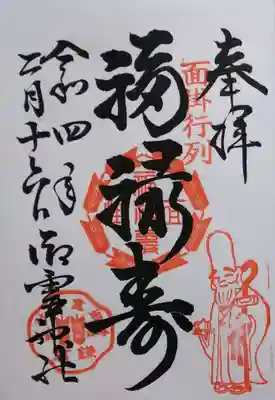 奉拝
面掛行列
福禄寿
令和四年
二月十六日 御霊神社